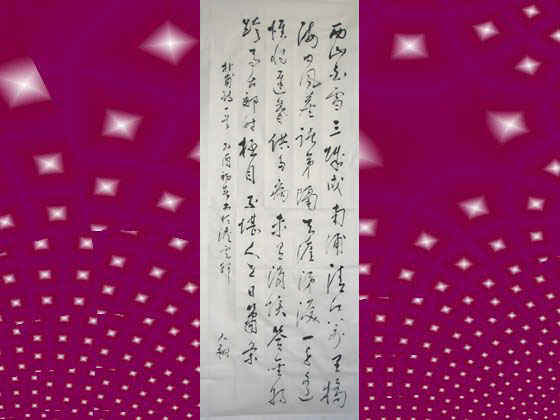 西山白雪三城戍南浦清江万里橋
海内風塵诸弟隔天涯涕淚一身遥
惟将遲暮供多病未有涓埃答聖朝
跨马出郊时極目不堪人事日蕭条
杜甫诗一首 乙酉初春书於雲軒